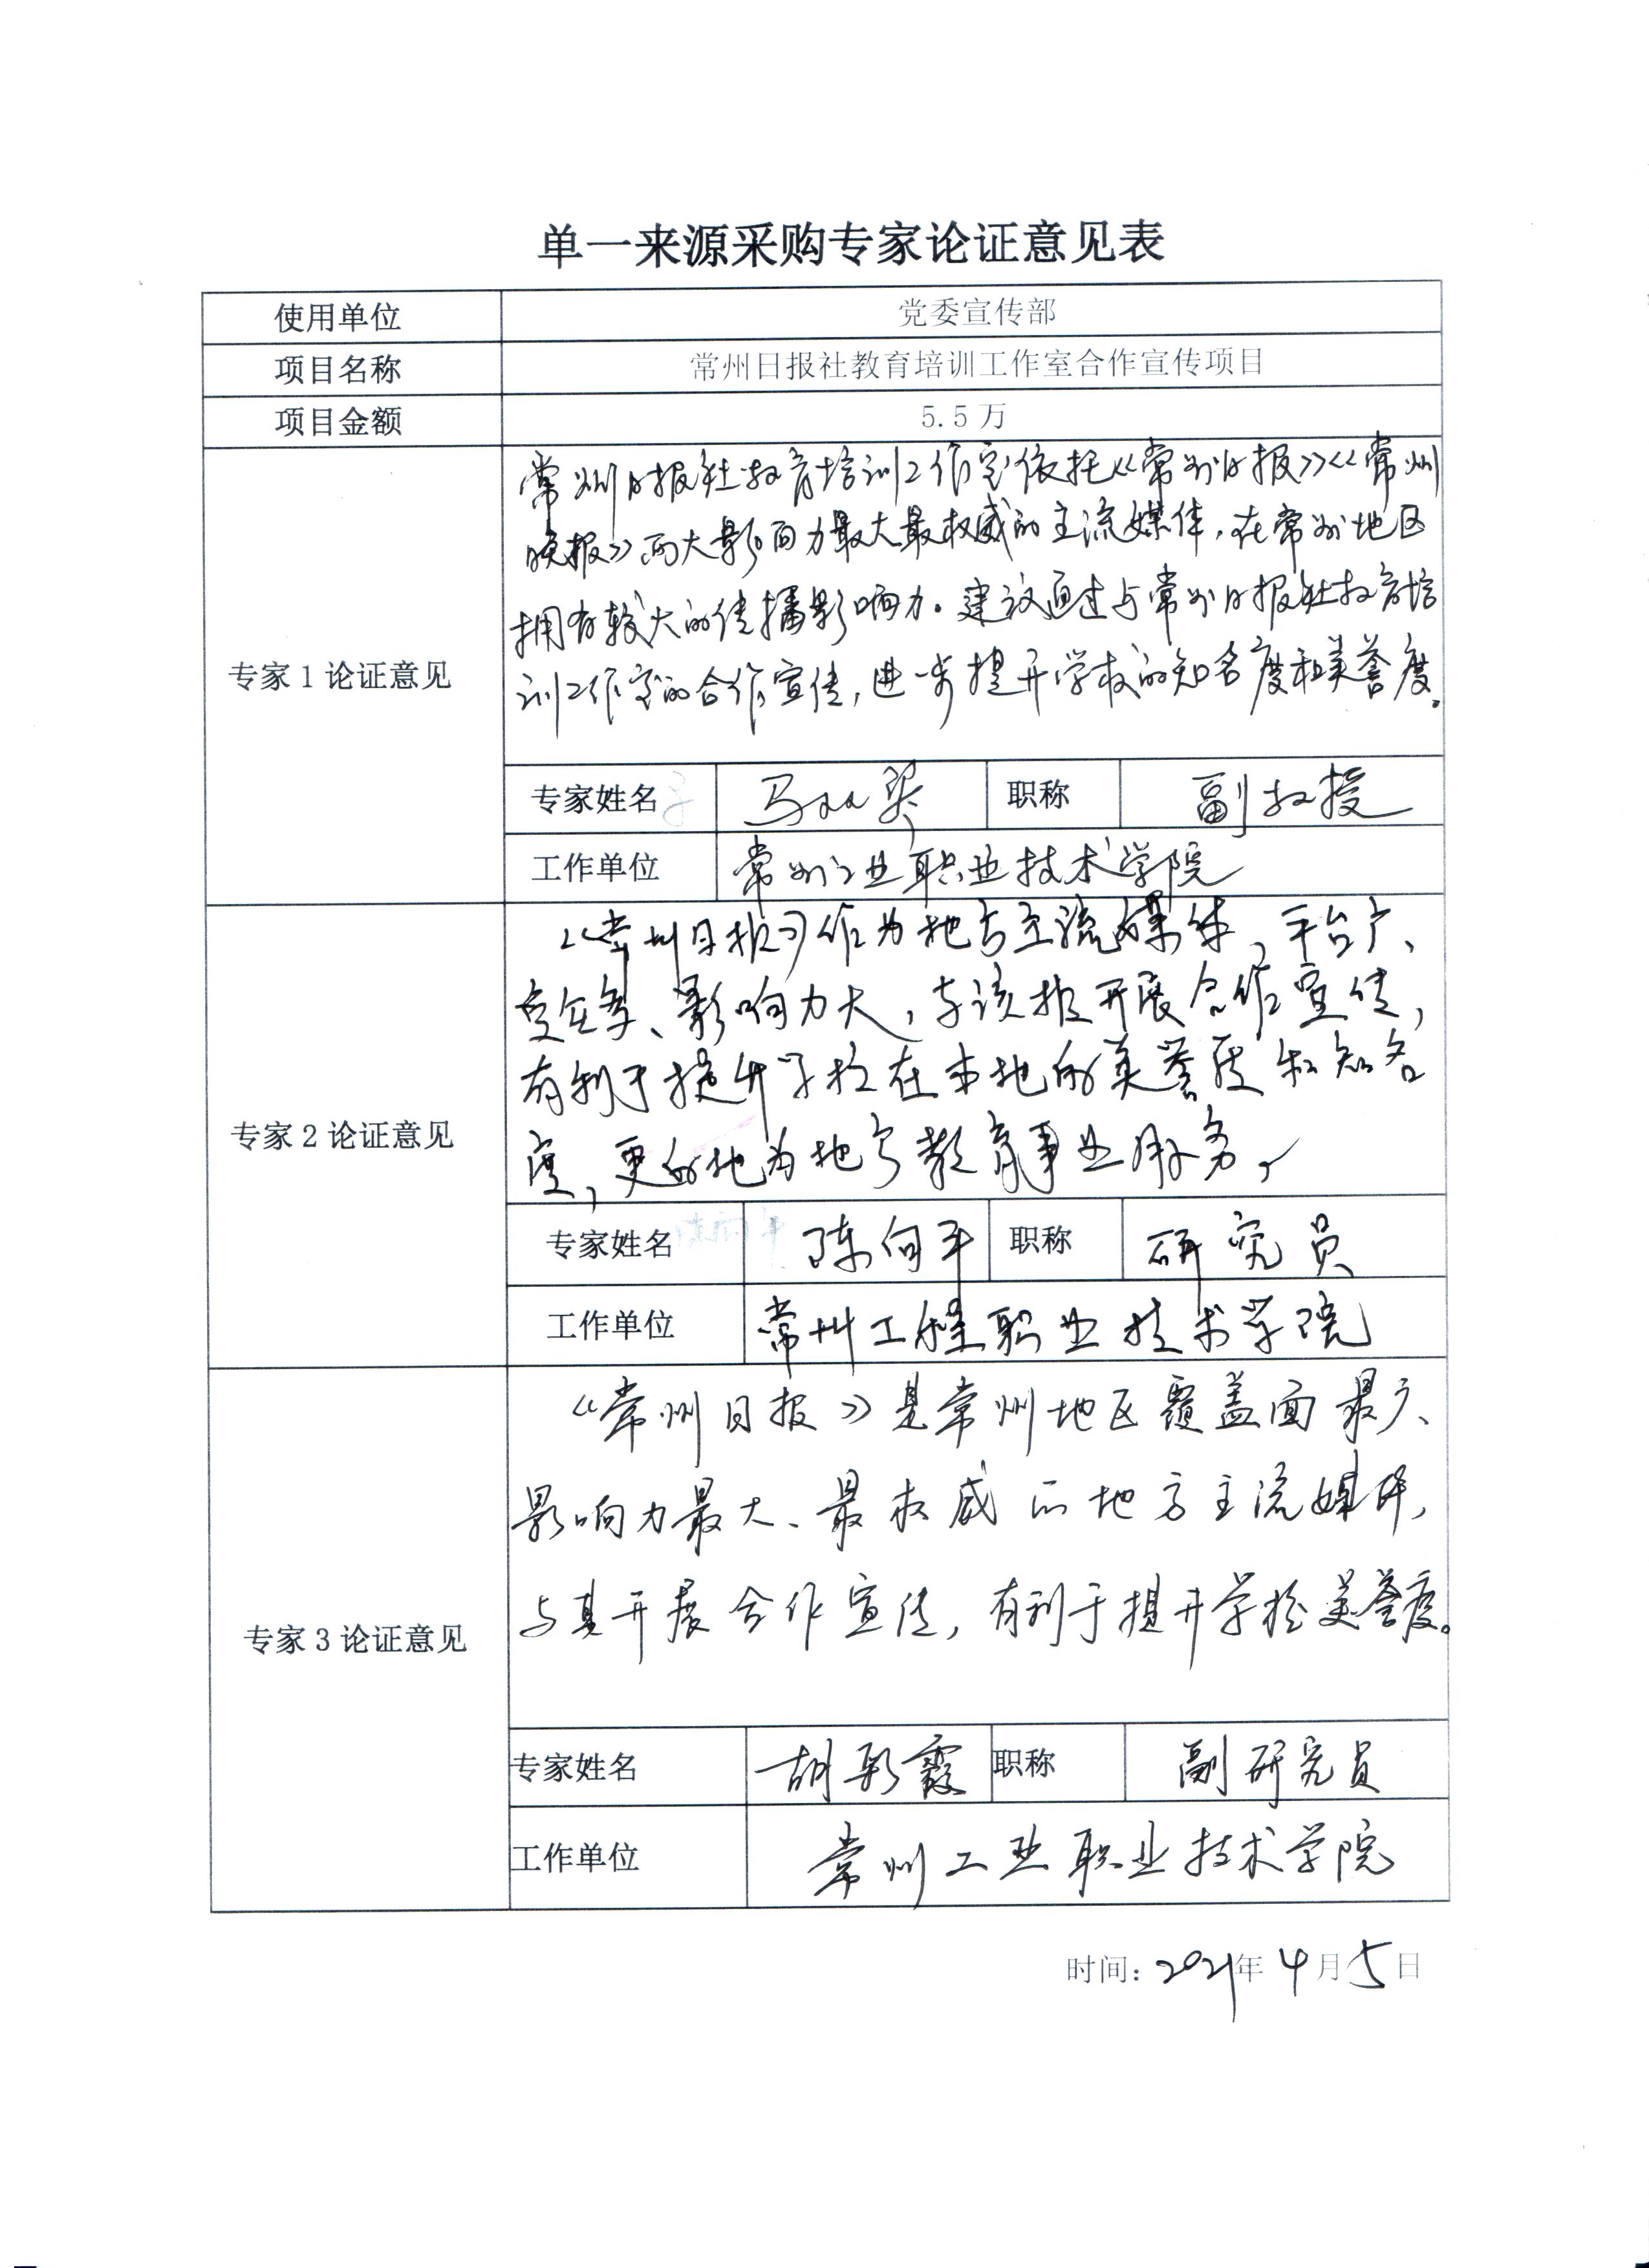 单一来源采购专家论证意见表
使用单位 党委宣传部
项目名称 常州日报社教育培训工作室合作宣传项目
项目金额 5.5万
专家1论证意见
常州日报社教育培训工作室依托《常州日报》《常州
晚报》两大影响力最大最权威的主流媒体，在常州地区
拥有较大的传播影响力。建议通过与常州日报社教育培
训工作室的合作宣传，进一步提升学校的知名度和美誉度。
专家姓名 马 职称 副教授
工作单位 常州工业职业技术学院
专家2论证意见
《常州日报》作为地方主流媒体，平台广、
受众多、影响力大，与该报开展合作宣传，
有利于提升学校在本地的美誉度和知名
度，更好地为地方教育事业服务。
专家姓名 陈向平 职称 研究员
工作单位 常州工程职业技术学院
专家3论证意见
《常州日报》是常州地区覆盖面最广、
影响力最大、最权威的地方主流媒体，
与其开展合作宣传，有利于提升学校美誉度。
专家姓名 胡新霞 职称 副研究员
工作单位 常州工业职业技术学院
时间：2021年4月5日